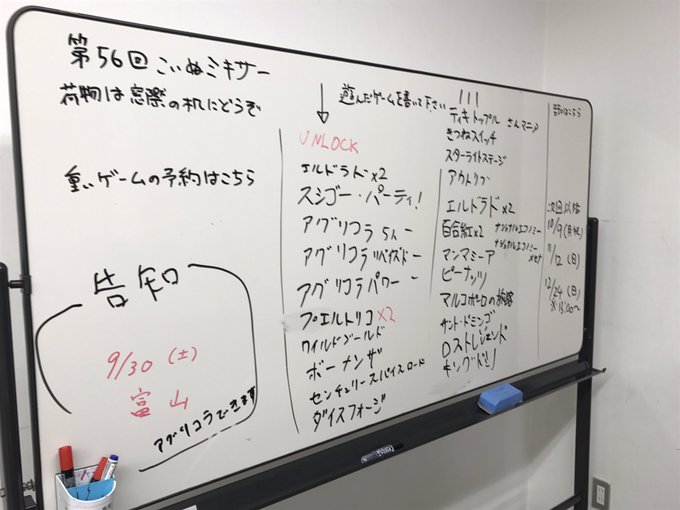 第56回こいぬミキサー
荷物は窓際の机にどうぞ
重いゲームの予約はこちら
告知
9/30(土)
富山
アグリコラできます
遊んだゲームを書いて下さい
UNLOCK
エルドラド×2
スシゴー・パーティ!
アグリコラ 5人
アグリコラリバイズド
アグリコラ
プエルトリコ×2
ワイルドゴールド
ボーナンザ
センチュリースパイスロード
ダイスフォージ
ティキトップル
きつねスイッチ
スターライトステージ
エルドラド×2
百合紅×2
ナショナルエコノミー
ナショナルエコノミーメセナ
マンマミーア
ピーナッツ
マルコポーロの
サンドドミンゴ
ロストレジェンド
キングドミノ
告知はこちら
次回以降
10/9(月・祝)
11/12(日)
12/24(日)
※13:00〜